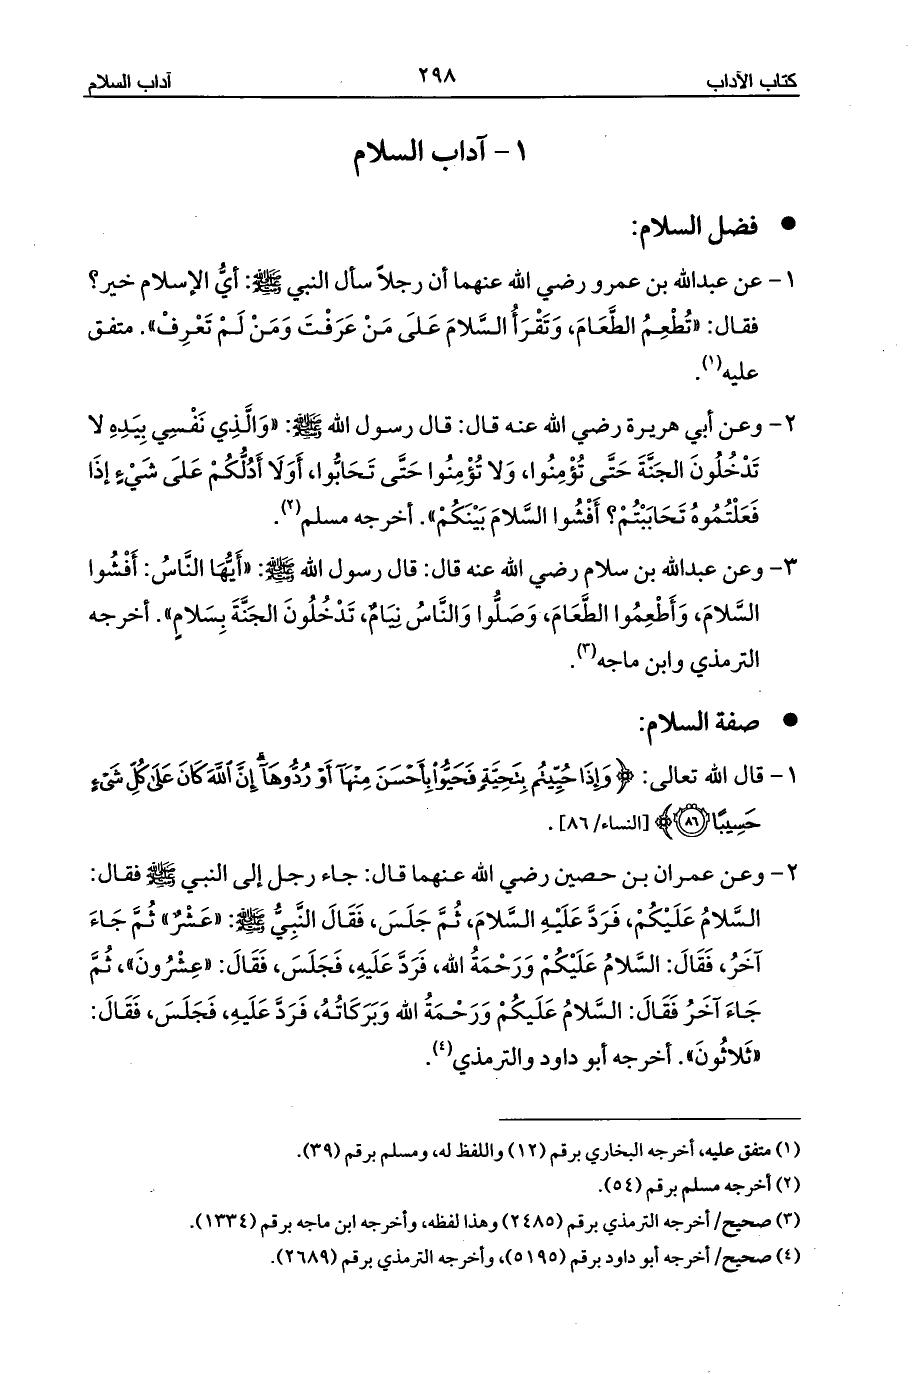 كتاب الآداب ٢٩٨ آداب السلام
١- آداب السلام
● فضل السلام:
١- عن عبدالله بن عمرو رضي الله عنهما أن رجلاً سأل النبي ﷺ: أيُّ الإسلام خير؟
فقال: «تُطْعِمُ الطَّعَامَ، وَتَقْرَأُ السَّلامَ عَلَى مَنْ عَرَفْتَ وَمَنْ لَمْ تَعْرِفْ». متفق
عليه(١).
٢- وعن أبي هريرة رضي الله عنه قال: قال رسول الله ﷺ: «وَالَّذِي نَفْسِي بِيَدِهِ لا
تَدْخُلُونَ الجَنَّةَ حَتَّى تُؤْمِنُوا، وَلا تُؤْمِنُوا حَتَّى تَحَابُّوا، أَوَلَا أَدُلُّكُمْ عَلَى شَيْءٍ إذَا
فَعَلْتُمُوهُ تَحَابَبْتُمْ؟ أَفْشُوا السَّلامَ بَيْنَكُمْ». أخرجه مسلم(٢).
٣- وعن عبدالله بن سلام رضي الله عنه قال: قال رسول الله ﷺ: «أَيُّهَا النَّاسُ: أَفْشُوا
السَّلامَ، وَأَطْعِمُوا الطَّعَامَ، وَصَلُّوا وَالنَّاسُ نِيَامٌ، تَدْخُلُونَ الجَنَّةَ بِسَلامٍ». أخرجه
الترمذي وابن ماجه(٣).
● صفة السلام:
١- قال الله تعالى: ﴿وَإِذَا حُيِّيتُم بِتَحِيَّةٍ فَحَيُّوا۟ بِأَحْسَنَ مِنْهَآ أَوْ رُدُّوهَآ ۗ إِنَّ ٱللَّهَ كَانَ عَلَىٰ كُلِّ شَىْءٍ
حَسِيبًا ٨٦﴾ [النساء/ ٨٦].
٢- وعن عمران بن حصين رضي الله عنهما قال: جاء رجل إلى النبي ﷺ فقال:
السَّلامُ عَلَيْكُمْ، فَرَدَّ عَلَيْهِ السَّلامَ، ثُمَّ جَلَسَ، فَقَالَ النَّبِيُّ ﷺ: «عَشْرٌ» ثُمَّ جَاءَ
آخَرُ، فَقَالَ: السَّلامُ عَلَيْكُمْ وَرَحْمَةُ الله، فَرَدَّ عَلَيهِ، فَجَلَسَ، فَقَالَ: «عِشْرُونَ»، ثُمَّ
جَاءَ آخَرُ فَقَالَ: السَّلامُ عَلَيكُمْ وَرَحْمَةُ الله وَبَرَكَاتُهُ، فَرَدَّ عَلَيهِ، فَجَلَسَ، فَقَالَ:
«ثَلاثُونَ». أخرجه أبو داود والترمذي(٤).
(١) متفق عليه، أخرجه البخاري برقم (١٢) واللفظ له، ومسلم برقم (٣٩).
(٢) أخرجه مسلم برقم (٥٤).
(٣) صحيح/ أخرجه الترمذي برقم (٢٤٨٥) وهذا لفظه، وأخرجه ابن ماجه برقم (١٣٣٤).
(٤) صحيح/ أخرجه أبو داود برقم (٥١٩٥)، وأخرجه الترمذي برقم (٢٦٨٩).